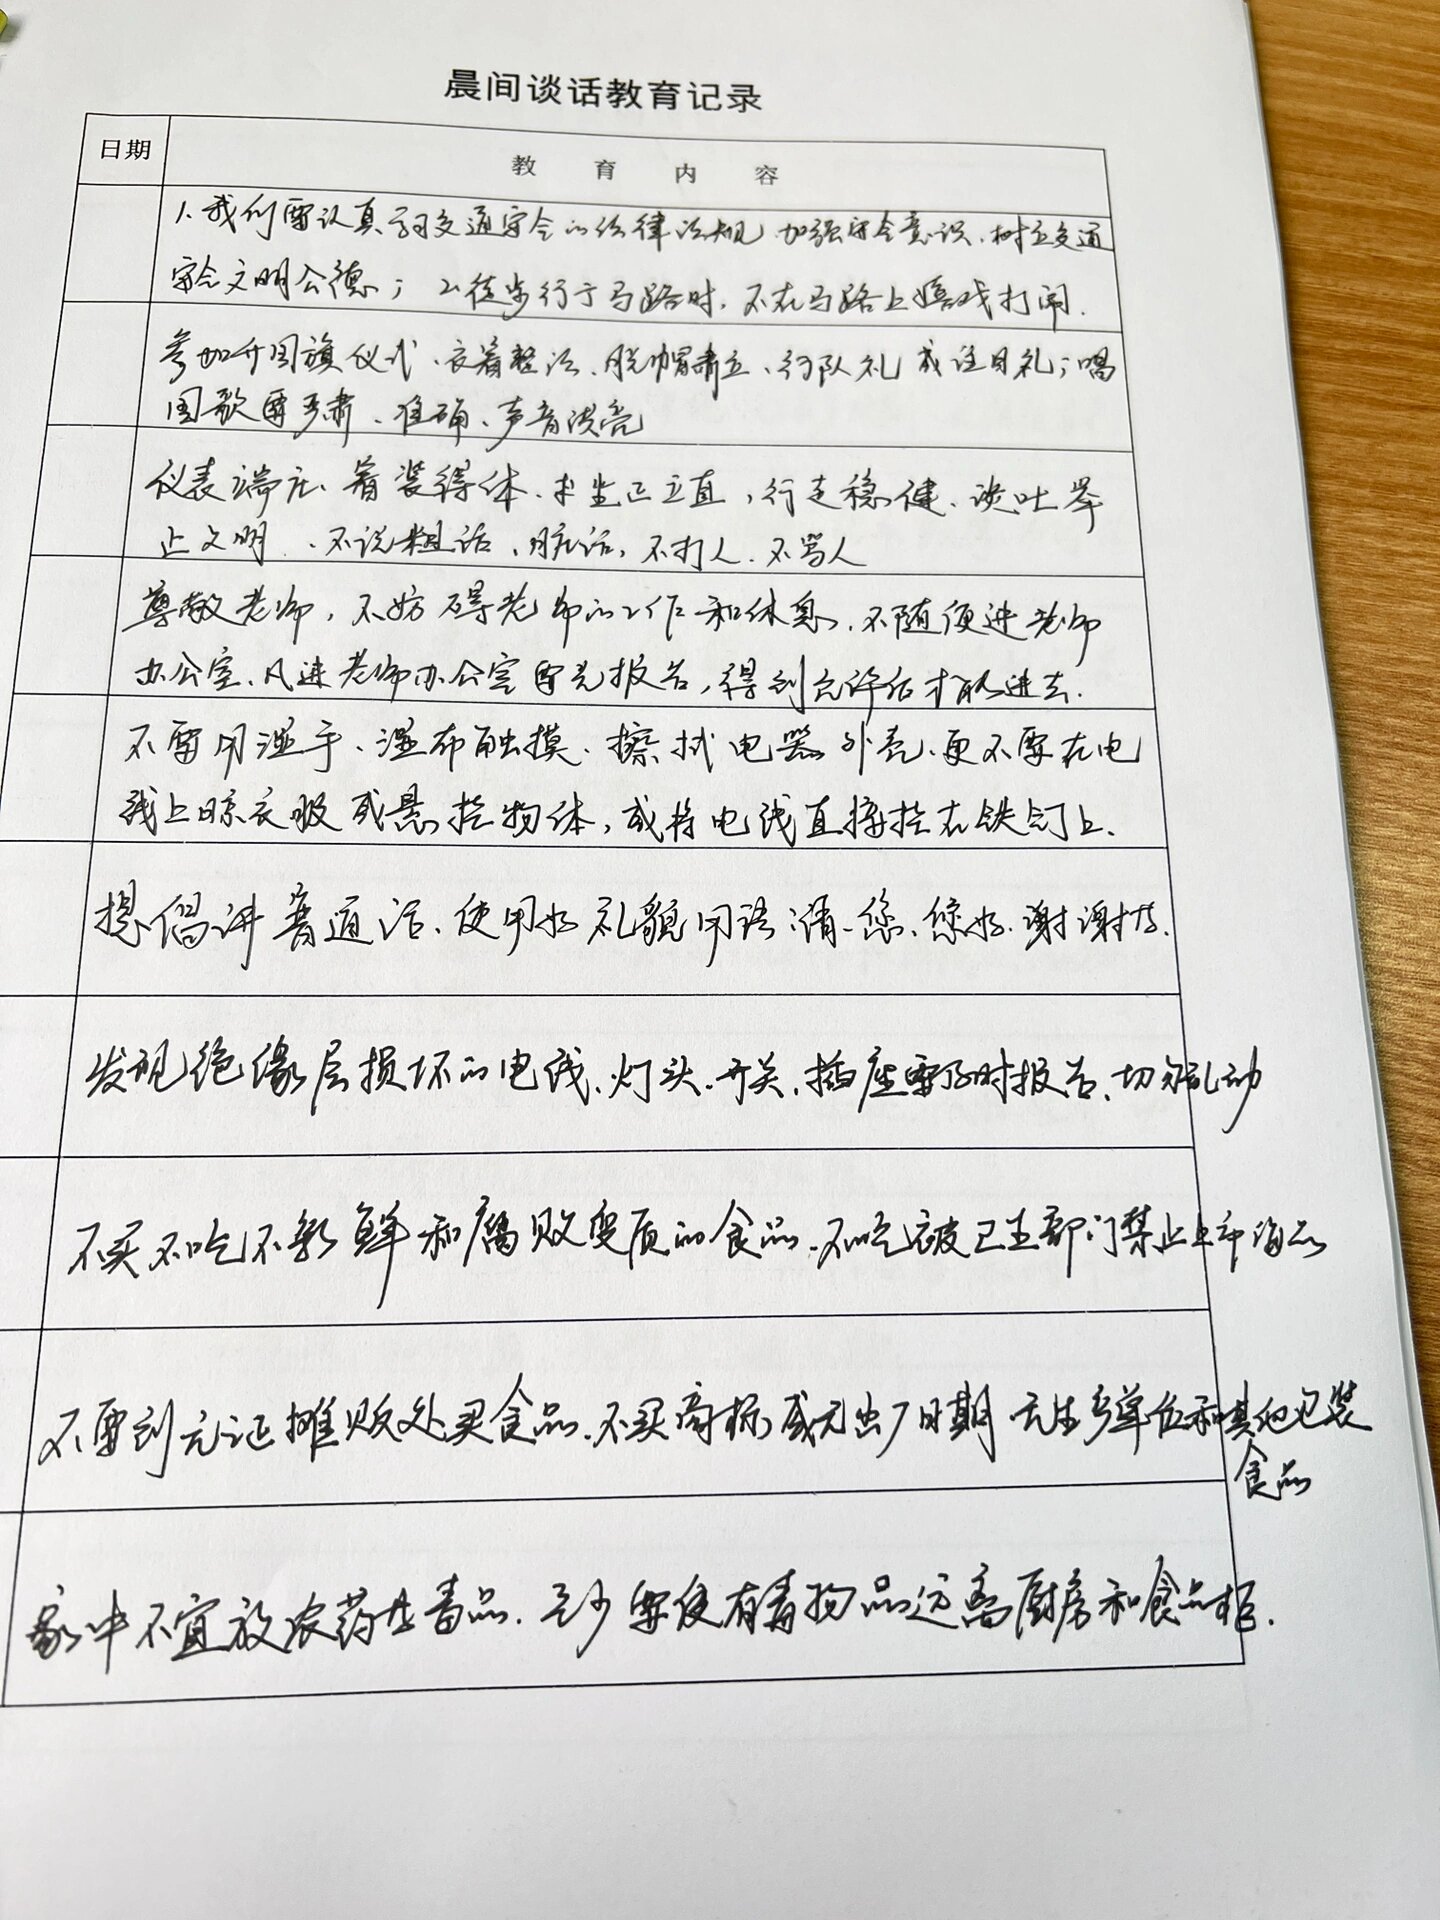 晨间谈话教育记录
日期
教 育 内 容
1.我们要认真学习交通安全的法律法规、加强安全意识、树立交通
安全文明公德；2.徒步行于马路时，不在马路上嬉戏打闹.
参加升国旗仪式、衣着整洁、脱帽肃立、行队礼或注目礼；唱
国歌要严肃、准确、声音洪亮
仪表端庄、着装得体、坐正立直，行走稳健、谈吐举
止文明、不说粗话、脏话，不打人、不骂人
尊敬老师，不妨碍老师的工作和休息、不随便进老师
办公室、凡进老师办公室要先报告，得到允许后才能进去.
不要用湿手、湿布触摸、擦拭电器外壳、更不要在电
线上晾衣服或悬挂物体，或将电线直接挂在铁钉上.
提倡讲普通话、使用好礼貌用语：请、您、您好、谢谢等.
发现绝缘层损坏的电线、灯头、开关、插座要及时报告、切勿乱动
不买不吃不新鲜和腐败变质的食品、不吃被卫生部门禁止上市海品
不要到无证摊贩处买食品、不买商标或无出厂日期 无生产单位和其他包装
食品
家中不宜放农药等毒品、至少要使有毒物品远离厨房和食品柜.